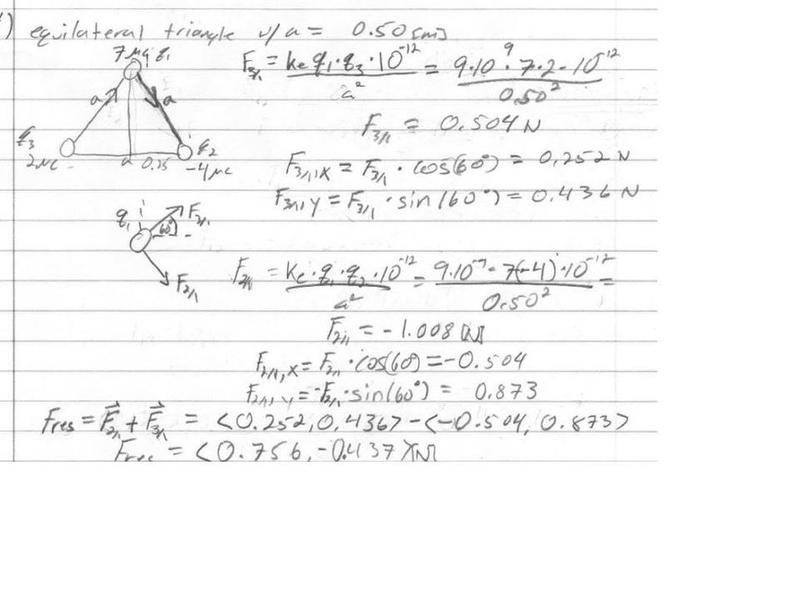 ) equilateral triangle w/ a = 0.50 [m]
7 μC q₁
a a
q₃ 2μC a 0.25 q₂ -4μC
F₃₁ = ke q₁·q₃·10⁻¹² / a² = 9·10⁹·7·2·10⁻¹² / 0.50²
F₃₁ = 0.504 N
F₃₁,x = F₃₁ · cos(60°) = 0,252 N
F₃₁,y = F₃₁ · sin(60°) = 0.436 N
q₁ F₃₁ 60° F₂₁
F₂₁ = ke·q₁·q₂·10⁻¹² / a² = 9·10⁹·7(-4)·10⁻¹² / 0.50² =
F₂₁ = -1.008 [N]
F₂₁,x = F₂₁ · cos(60) = -0.504
F₂₁,y = -F₂₁·sin(60°) = 0.873
Fres = F⃗₂₁ + F⃗₃₁ = <0.252, 0.436> - <-0.504, 0.873>
Fres = <0.756, -0.437>[N]